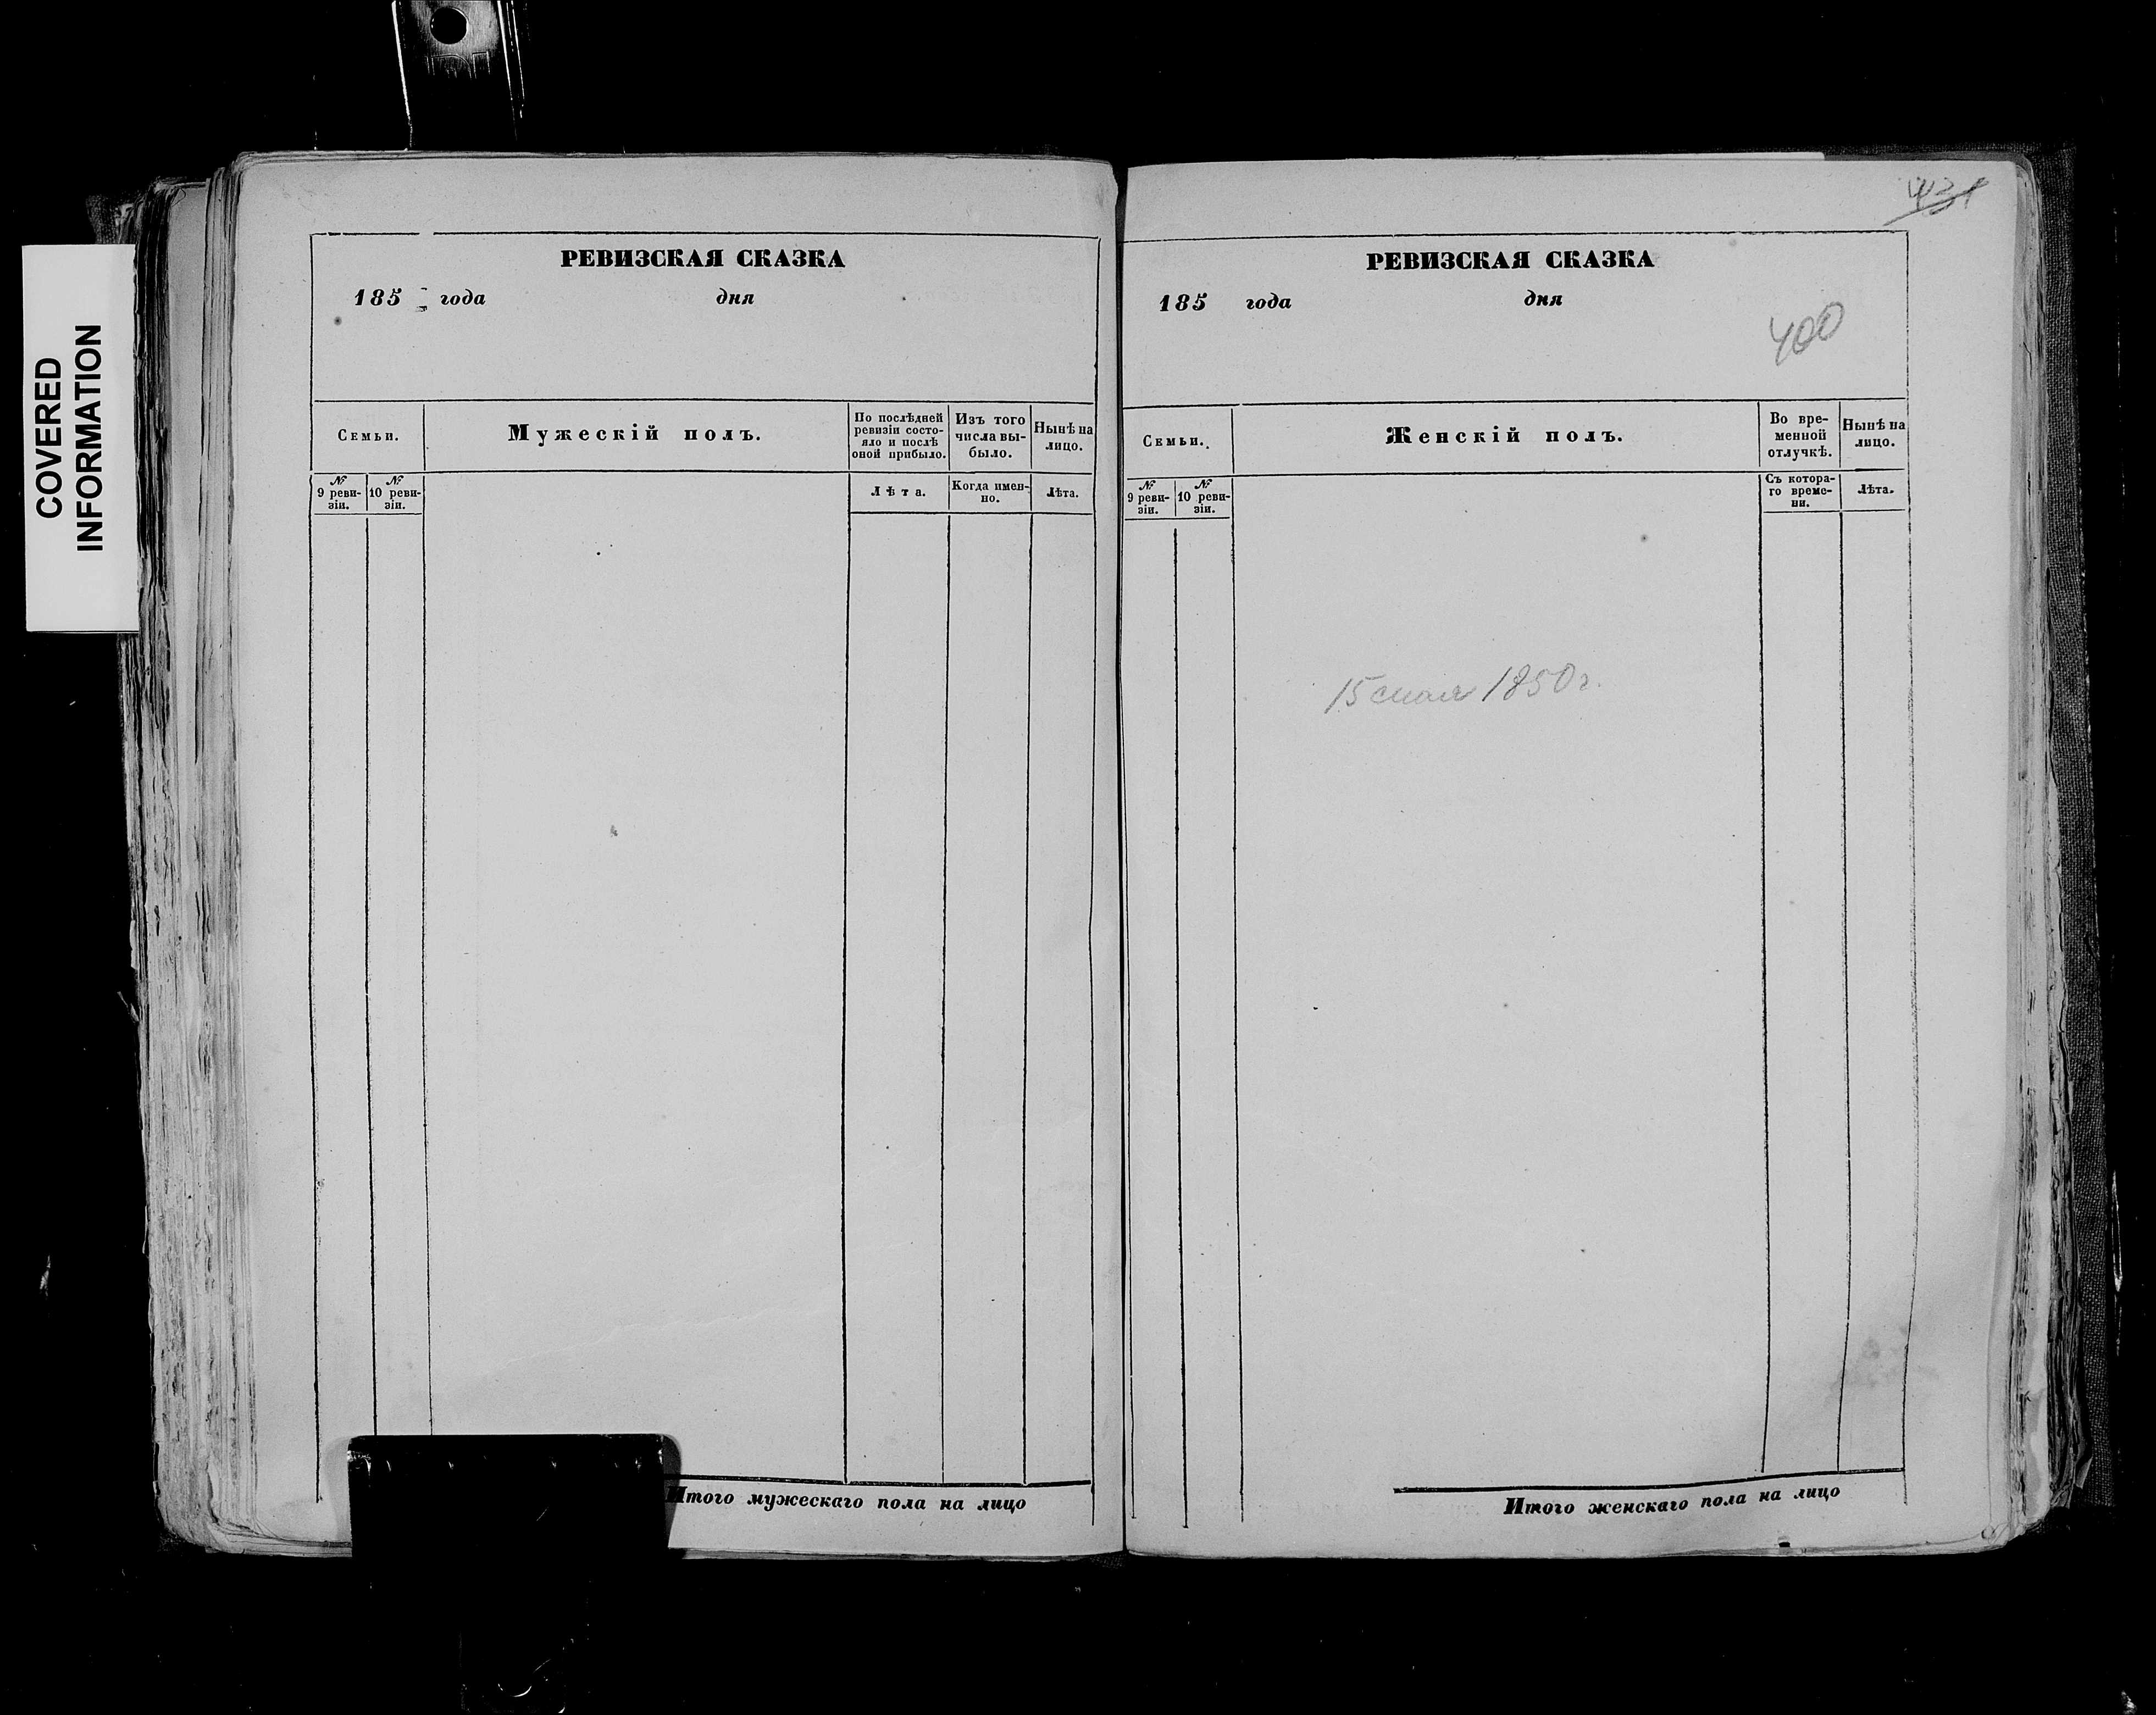 COVERED
INFORMATION
РЕВИЗСКАЯ СКАЗКА
185 года дня
Семьи.
Мужескій полъ.
По послѣдней
ревизіи состо-
яло и послѣ
оной прибыло.
Изъ того
числа вы-
было.
Нынѣ на
лицо.
№
9 реви-
зіи.
№
10 реви-
зіи.
Лѣта.
Когда имен-
но.
Лѣта.
Итого мужескаго пола на лицо
431
РЕВИЗСКАЯ СКАЗКА
185 года дня
400
Семьи.
Женскій полъ.
Во вре-
менной
отлучкѣ.
Нынѣ на
лицо.
№
9 реви-
зіи.
№
10 реви-
зіи.
Съ котора-
го време-
ни.
Лѣта.
15 мая 1850 г.
Итого женскаго пола на лицо